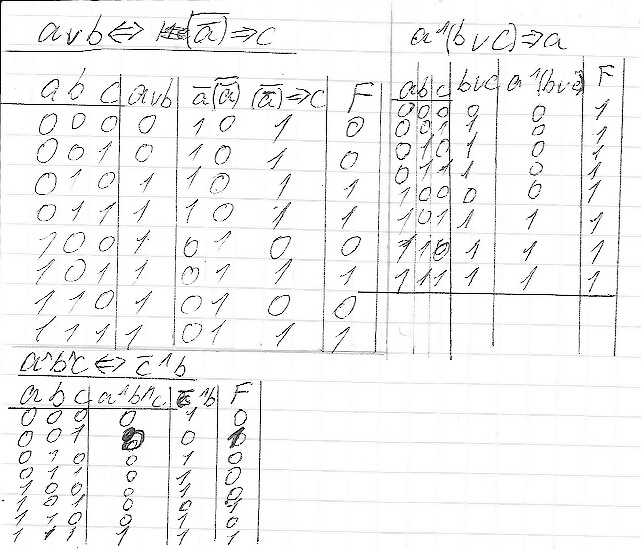 a∨b⇔ (a̿)⇒c
a b c a∨b a̅ (a̿) (a̿)⇒c F
0 0 0 0 1 0 1 0
0 0 1 0 1 0 1 0
0 1 0 1 1 0 1 1
0 1 1 1 1 0 1 1
1 0 0 1 0 1 0 0
1 0 1 1 0 1 1 1
1 1 0 1 0 1 0 0
1 1 1 1 0 1 1 1
a^(b∨c)⇒a
a b c b∨c a^(b∨c) F
0 0 0 0 0 1
0 0 1 1 0 1
0 1 0 1 0 1
0 1 1 1 0 1
1 0 0 0 0 1
1 0 1 1 1 1
1 1 0 1 1 1
1 1 1 1 1 1
a^b^c ⇔ c̅^b
a b c a^b^c c̅^b F
0 0 0 0 1 0
0 0 1 0 0
0 1 0 0 1 0
0 1 1 0 1 0
0 1 0
1 0 1 0 0 1
1 1 0 0 1 0
1 1 1 1 1 1